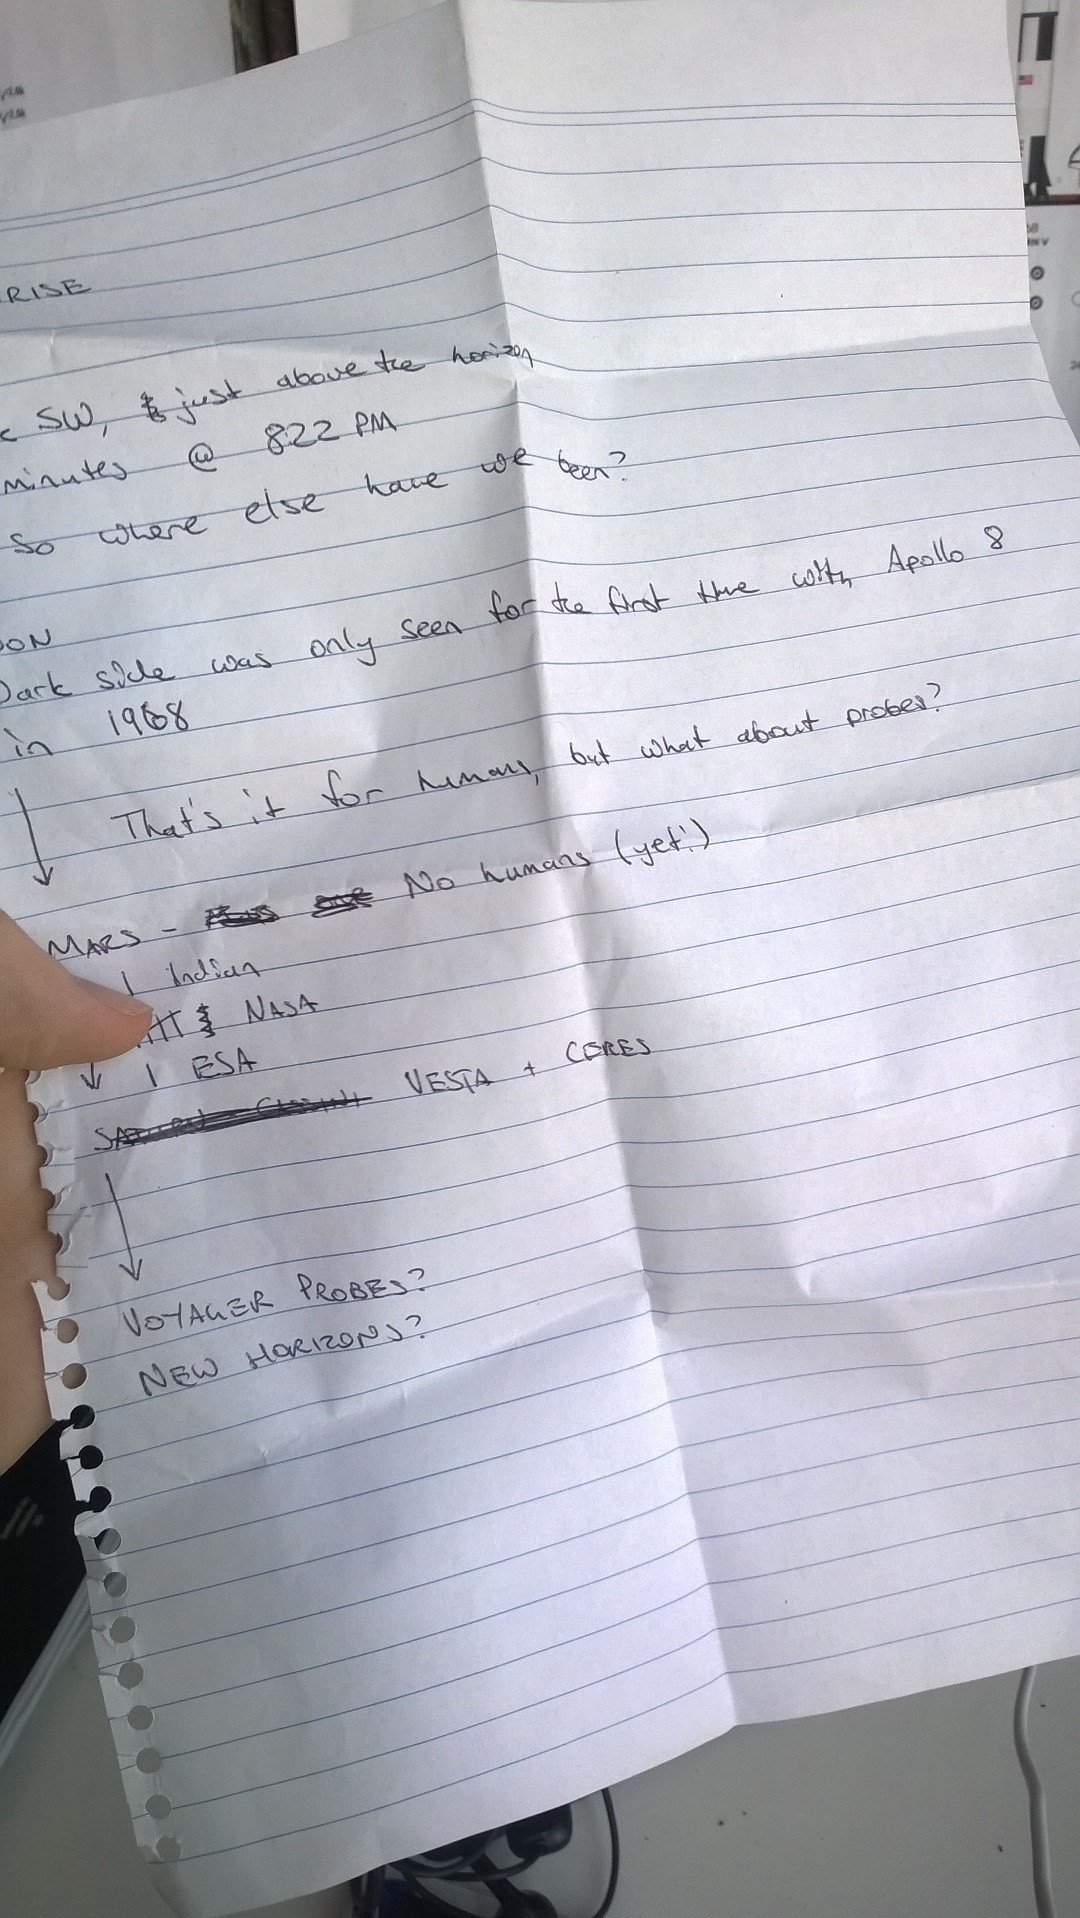 RISE
SW, just above the horizon
minutes @ 822 PM
So where else have we been?
OON
Dark side was only seen for the first time with Apollo 8
in 1968
That's it for humans, but what about probes?
MARS - No humans (yet!)
1 Indian
NASA
1 ESA
VESTA + CERES
VOYAGER PROBES?
NEW HORIZONS?